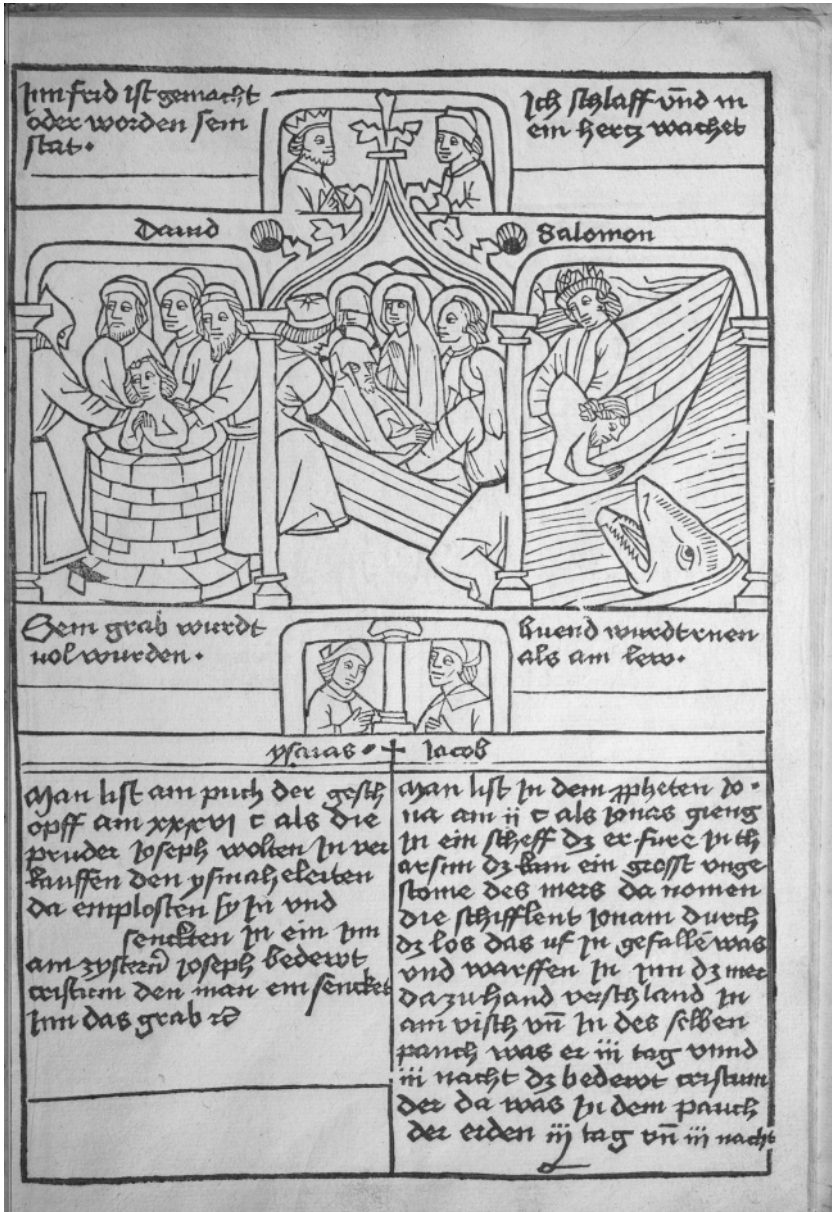 Inn frid ist gemacht
oder worden sein
stat.
Ich schlaff vnd m
ein hertz wachet
Dauid
Salomon
Sein grab wurdt
vol wurden.
als am lew.
ysaias. Jacob
Man list am puch der gesch
opff am xxxvi c als die
pruder ioseph wolten In ver
kauffen den ysmaheleiten
da emplosten sy In vnd
senckten in ein inn
am zystern ioseph bedewt
cristum den man ein sencket
Inn das grab
Man list In dem ppheten Jo.
na am ii c als Jonas gieng
In ein scheff dz er fure In th
arsim dz kam ein grosst vnge
stome des mers da nomen
die schifflent ionam durch
dz los das uf in gefallē was
vnd warffen In Inn dz mer
da zuhand verschland In
am visch vn̄ In des selben
pauch was er iii tag vnnd
iii nacht dz bedewt cristum
der da was In dem pauch
der erden iij tag vn̄ iii nacht